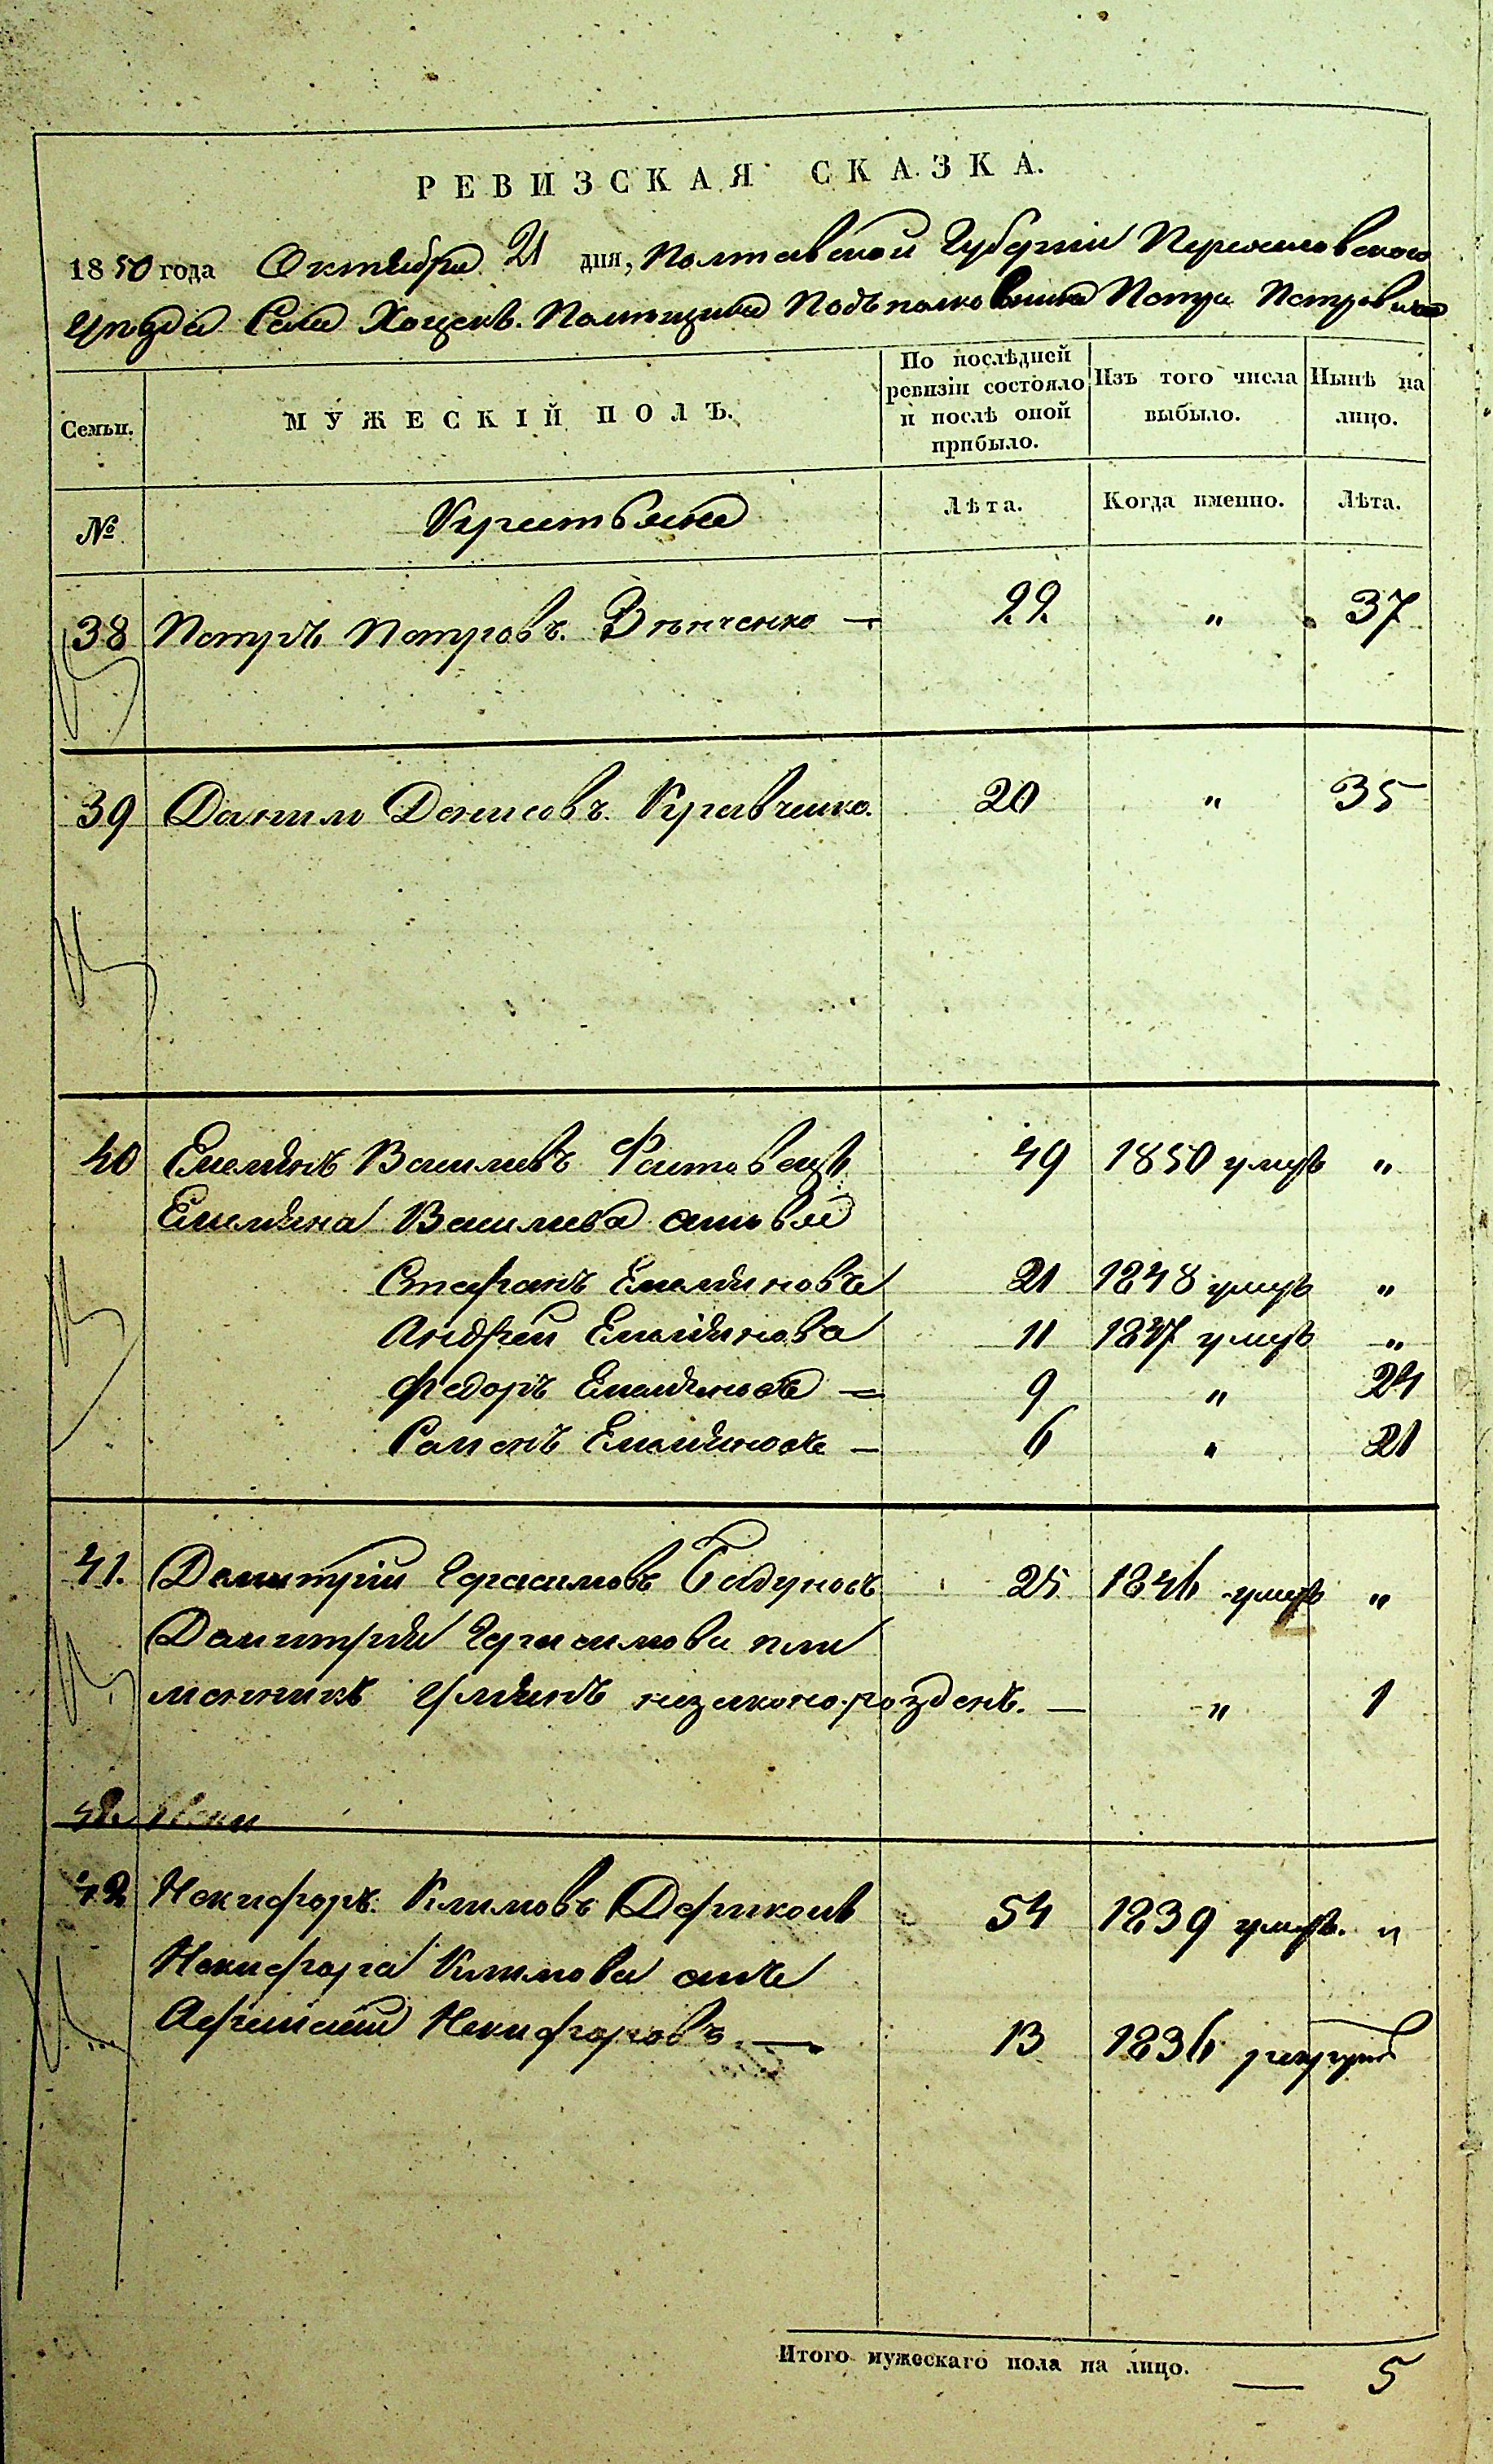 РЕВИЗСКАЯ СКАЗКА.
1850 года Октября 21 дня, Полтавской Губерніи Переяславского
Уѣзда Села Хоцекъ. Помѣщика Подъполковника Петра Петровича
Семьи. МУЖЕСКІЙ ПОЛЪ. По послѣдней ревизіи состояло и послѣ оной прибыло. Изъ того числа выбыло. Нынѣ на лицо.
№ Крестьяне Лѣта. Когда именно. Лѣта.
38 Петръ Петровъ. — 22 " 37
39 Данило Денисовъ. Кравченко. 20 " 35
40 Емелянъ Василивъ 49 1850 умеръ "
Емеляна Василива сыновья
Стефанъ Емеляновъ 21 1848 умеръ "
Андрей Емелянова 11 1847 умеръ "
Федоръ Емеляновъ — 9 " 24
Семенъ Емеляновъ — 6 " 21
41. Дмитрій Герасимовъ 25 1846 умеръ "
Дмитрія Герасимова пле
менникъ Улянъ незаконорозденъ. — " 1
42
42 Некифоръ. Климовъ 54 1839 умеръ. "
Некифора Климова сынъ
Афанасій Некифоровъ. — 13 1836
Итого мужескаго пола на лицо. — 5